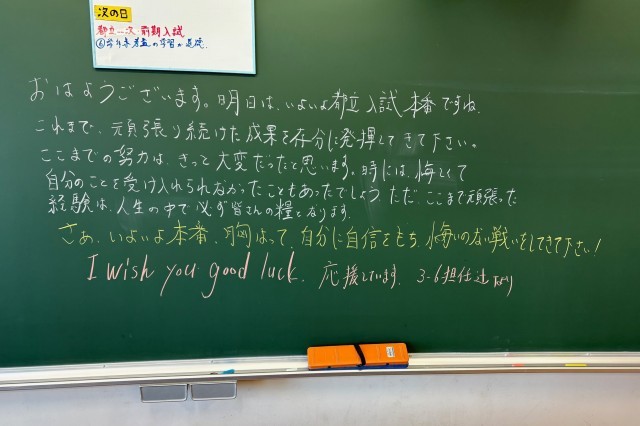 次の日
都立一次・前期入試
おはようございます。明日は、いよいよ都立入試本番ですね。
これまで、頑張り続けた成果を存分に発揮してきて下さい。
ここまでの努力は、きっと大変だったと思います。時には、悔しくて
自分のことを受け入れられなかったこともあったでしょう。ただ、ここまで頑張った
経験は、人生の中で必ず皆さんの糧となります。
さぁ、いよいよ本番、胸はって、自分に自信をもち、悔いのない戦いをしてきて下さい!
I wish you good luck. 応援しています。 3-6担任達より